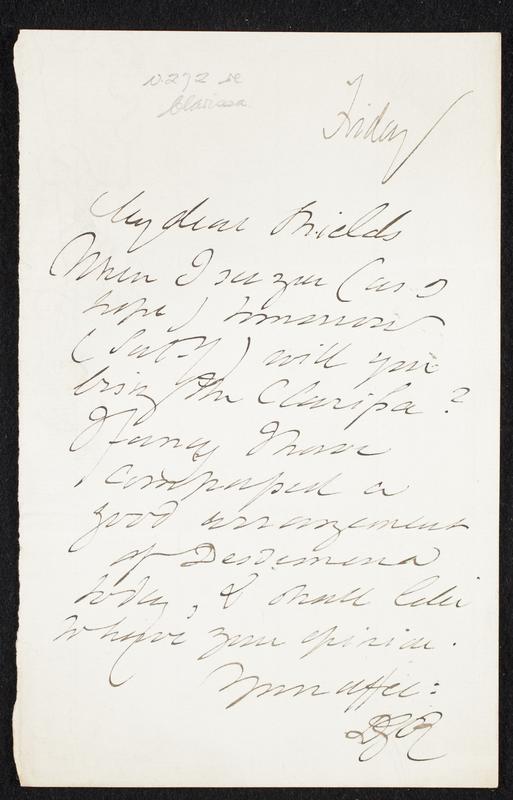 v. 272 re
Clarissa
Friday
My dear Shields
When I see you (as I
hope) tomorrow
(Saty) will you
bring the Clarissa?
I fancy I have
compassed a
good arrangement
of Desdemona
today, & shall like
to have your opinion.
Your affec:
DGR